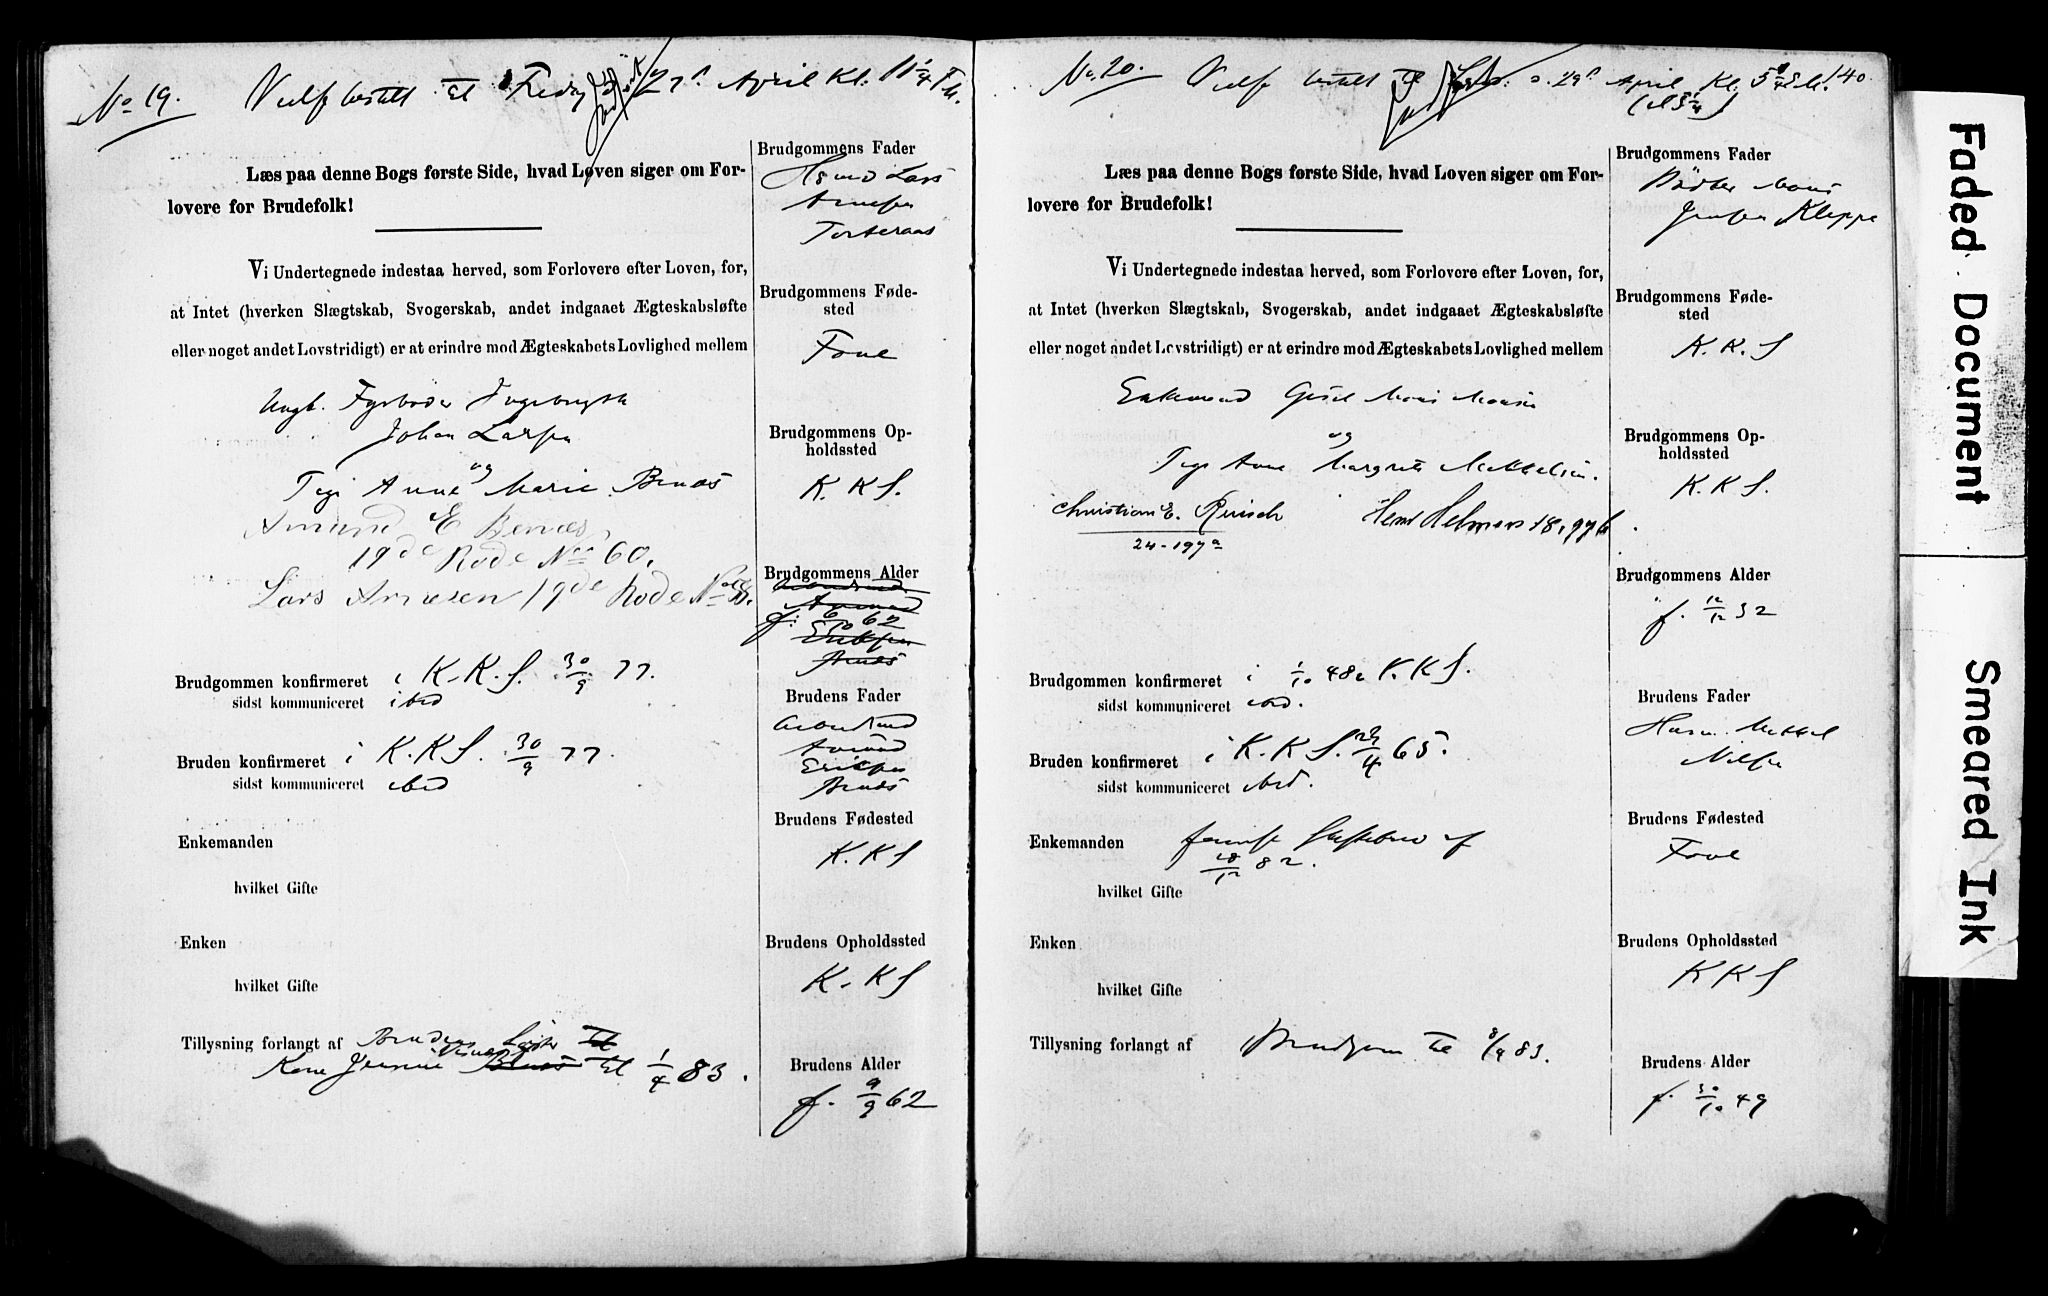 No 19. Vielse bestilt til Fredag d 27d April Kl. 11 1/4 Fm.
Læs paa denne Bogs første Side, hvad Loven siger om For-
lovere for Brudefolk!
Vi Undertegnede indestaa herved, som Forlovere efter Loven, for,
at Intet (hverken Slægtskab, Svogerskab, andet indgaaet Ægteskabsløfte
eller noget andet Lovstridigt) er at erindre mod Ægteskabets Lovlighed mellem
Ungk. Fyrbøder Ingebrigt
Johan Larsen
og
Pige Anne Marie
Amund E
19de Rode No 60.
Lars Arnesen 19de Rode No
Brudgommen konfirmeret i K. K. S. 30/9 77.
sidst kommuniceret ibid
Bruden konfirmeret i K. K S. 30/9 77.
sidst kommuniceret ibid
Enkemanden
hvilket Gifte
Enken
hvilket Gifte
Tillysning forlangt af Brudens
Kone til 1/4 83.
Brudgommens Fader
Lars
Arnesen
Brudgommens Føde-
sted
Fane
Brudgommens Op-
holdssted
K. K S.
Brudgommens Alder
f. 62
Brudens Fader
Amund
Eriksen
Brudens Fødested
K. K S
Brudens Opholdssted
K. K S
Brudens Alder
f. 9/9 62
No. 20. Vielse bestilt til d. 29d April Kl. 5
140
Læs paa denne Bogs første Side, hvad Loven siger om For-
lovere for Brudefolk!
Vi Undertegnede indestaa herved, som Forlovere efter Loven, for,
at Intet (hverken Slægtskab, Svogerskab, andet indgaaet Ægteskabsløfte
eller noget andet Lovstridigt) er at erindre mod Ægteskabets Lovlighed mellem
Enkemand Mons Monsen
og
Pige Anne Margrete Mikkelsen.
Christian E. Reusch Helmers 18,97b
24-197a
Brudgommen konfirmeret i 1/10 48 i K. K S.
sidst kommuniceret ibid.
Bruden konfirmeret i K. K S. 23/4 65.
sidst kommuniceret ibid.
Enkemanden Skiftebrev af
18/12 82.
hvilket Gifte
Enken
hvilket Gifte
Tillysning forlangt af Brudgom til 8/4 83.
Brudgommens Fader
Bødker Mons
Jensen Kleppe
Brudgommens Føde-
sted
K. K. S
Brudgommens Op-
holdssted
K. K S.
Brudgommens Alder
f. 12/12 32
Brudens Fader
Husm. Mikkel
Nilsen
Brudens Fødested
Fane
Brudens Opholdssted
K K S
Brudens Alder
f. 30/10 49
Faded Document
Smeared Ink